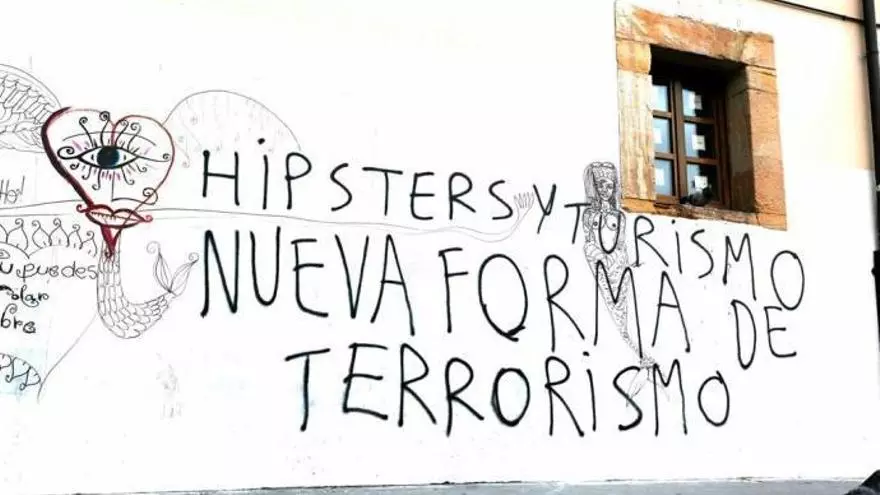 HiPSTERS Y TURiSMO
NUEVA FORMA DE
TERRORiSMO
puedes